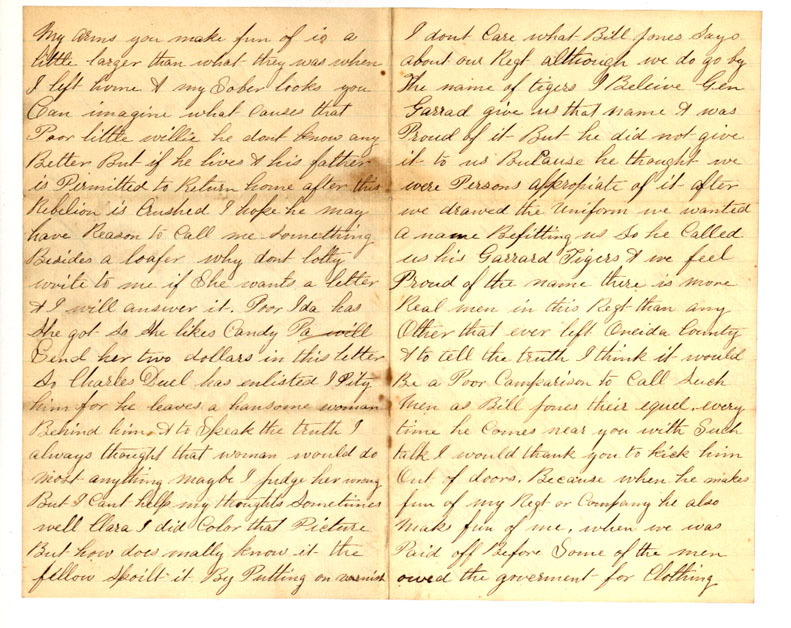 My arms you make fun of is a
little larger than what they was when
I left home & my Sober looks you
Can imagine what Causes that
Poor little willie he dont know any
Better But if he lives & his father
is Permitted to Return home after this
Rebelion is Crushed I hope he may
have Reason to Call me something
Besides a loafer why dont lotty
write to me if She wants a letter
& I will answer it. Poor Ida has
She got so She likes Candy Pa will
Send her two dollars in this letter
So Charles Duel has enlisted I Pity
him for he leaves a hansome woman
Behind him, & to Speak the truth I
always thought that woman would do
most anything maybe I judge her wrong
But I Cant help my thoughts Sometimes
well Clara I did Color that Picture
But how does matty know it the
fellow Spoilt it By Putting on varnish
I dont Care what Bill Jones Says
about our Regt although we do go by
The name of tigers I Beleive Gen
Garrad give us that name & was
Proud of it But he did not give
it to us Because he thought we
were Persons appropiate of it after
we drawed the Uniform we wanted
a name Befitting us So he Called
us his Garrard Tigers & we feel
Proud of the name there is more
Real men in this Regt than any
Other that ever left Oneida County
& to tell the truth I think it would
Be a Poor Comparison to Call Such
men as Bill Jones their equel, every
time he Comes near you with Such
talk I would thank you to kick him
Out of doors. Because when he makes
fun of my Regt or Company he also
makes fun of me, when we was
Paid off Before Some of the men
owed the goverment for Clothing